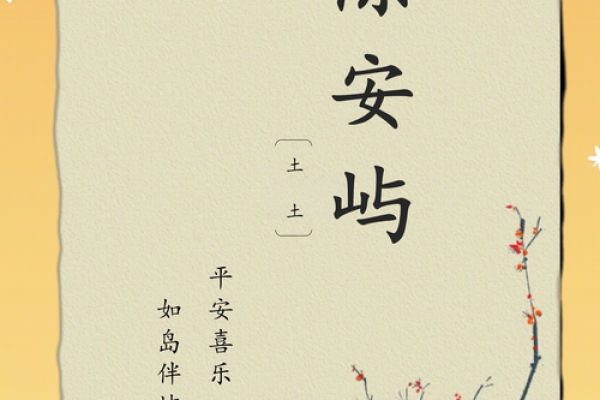 安屿
土土
平安喜乐
如岛伴